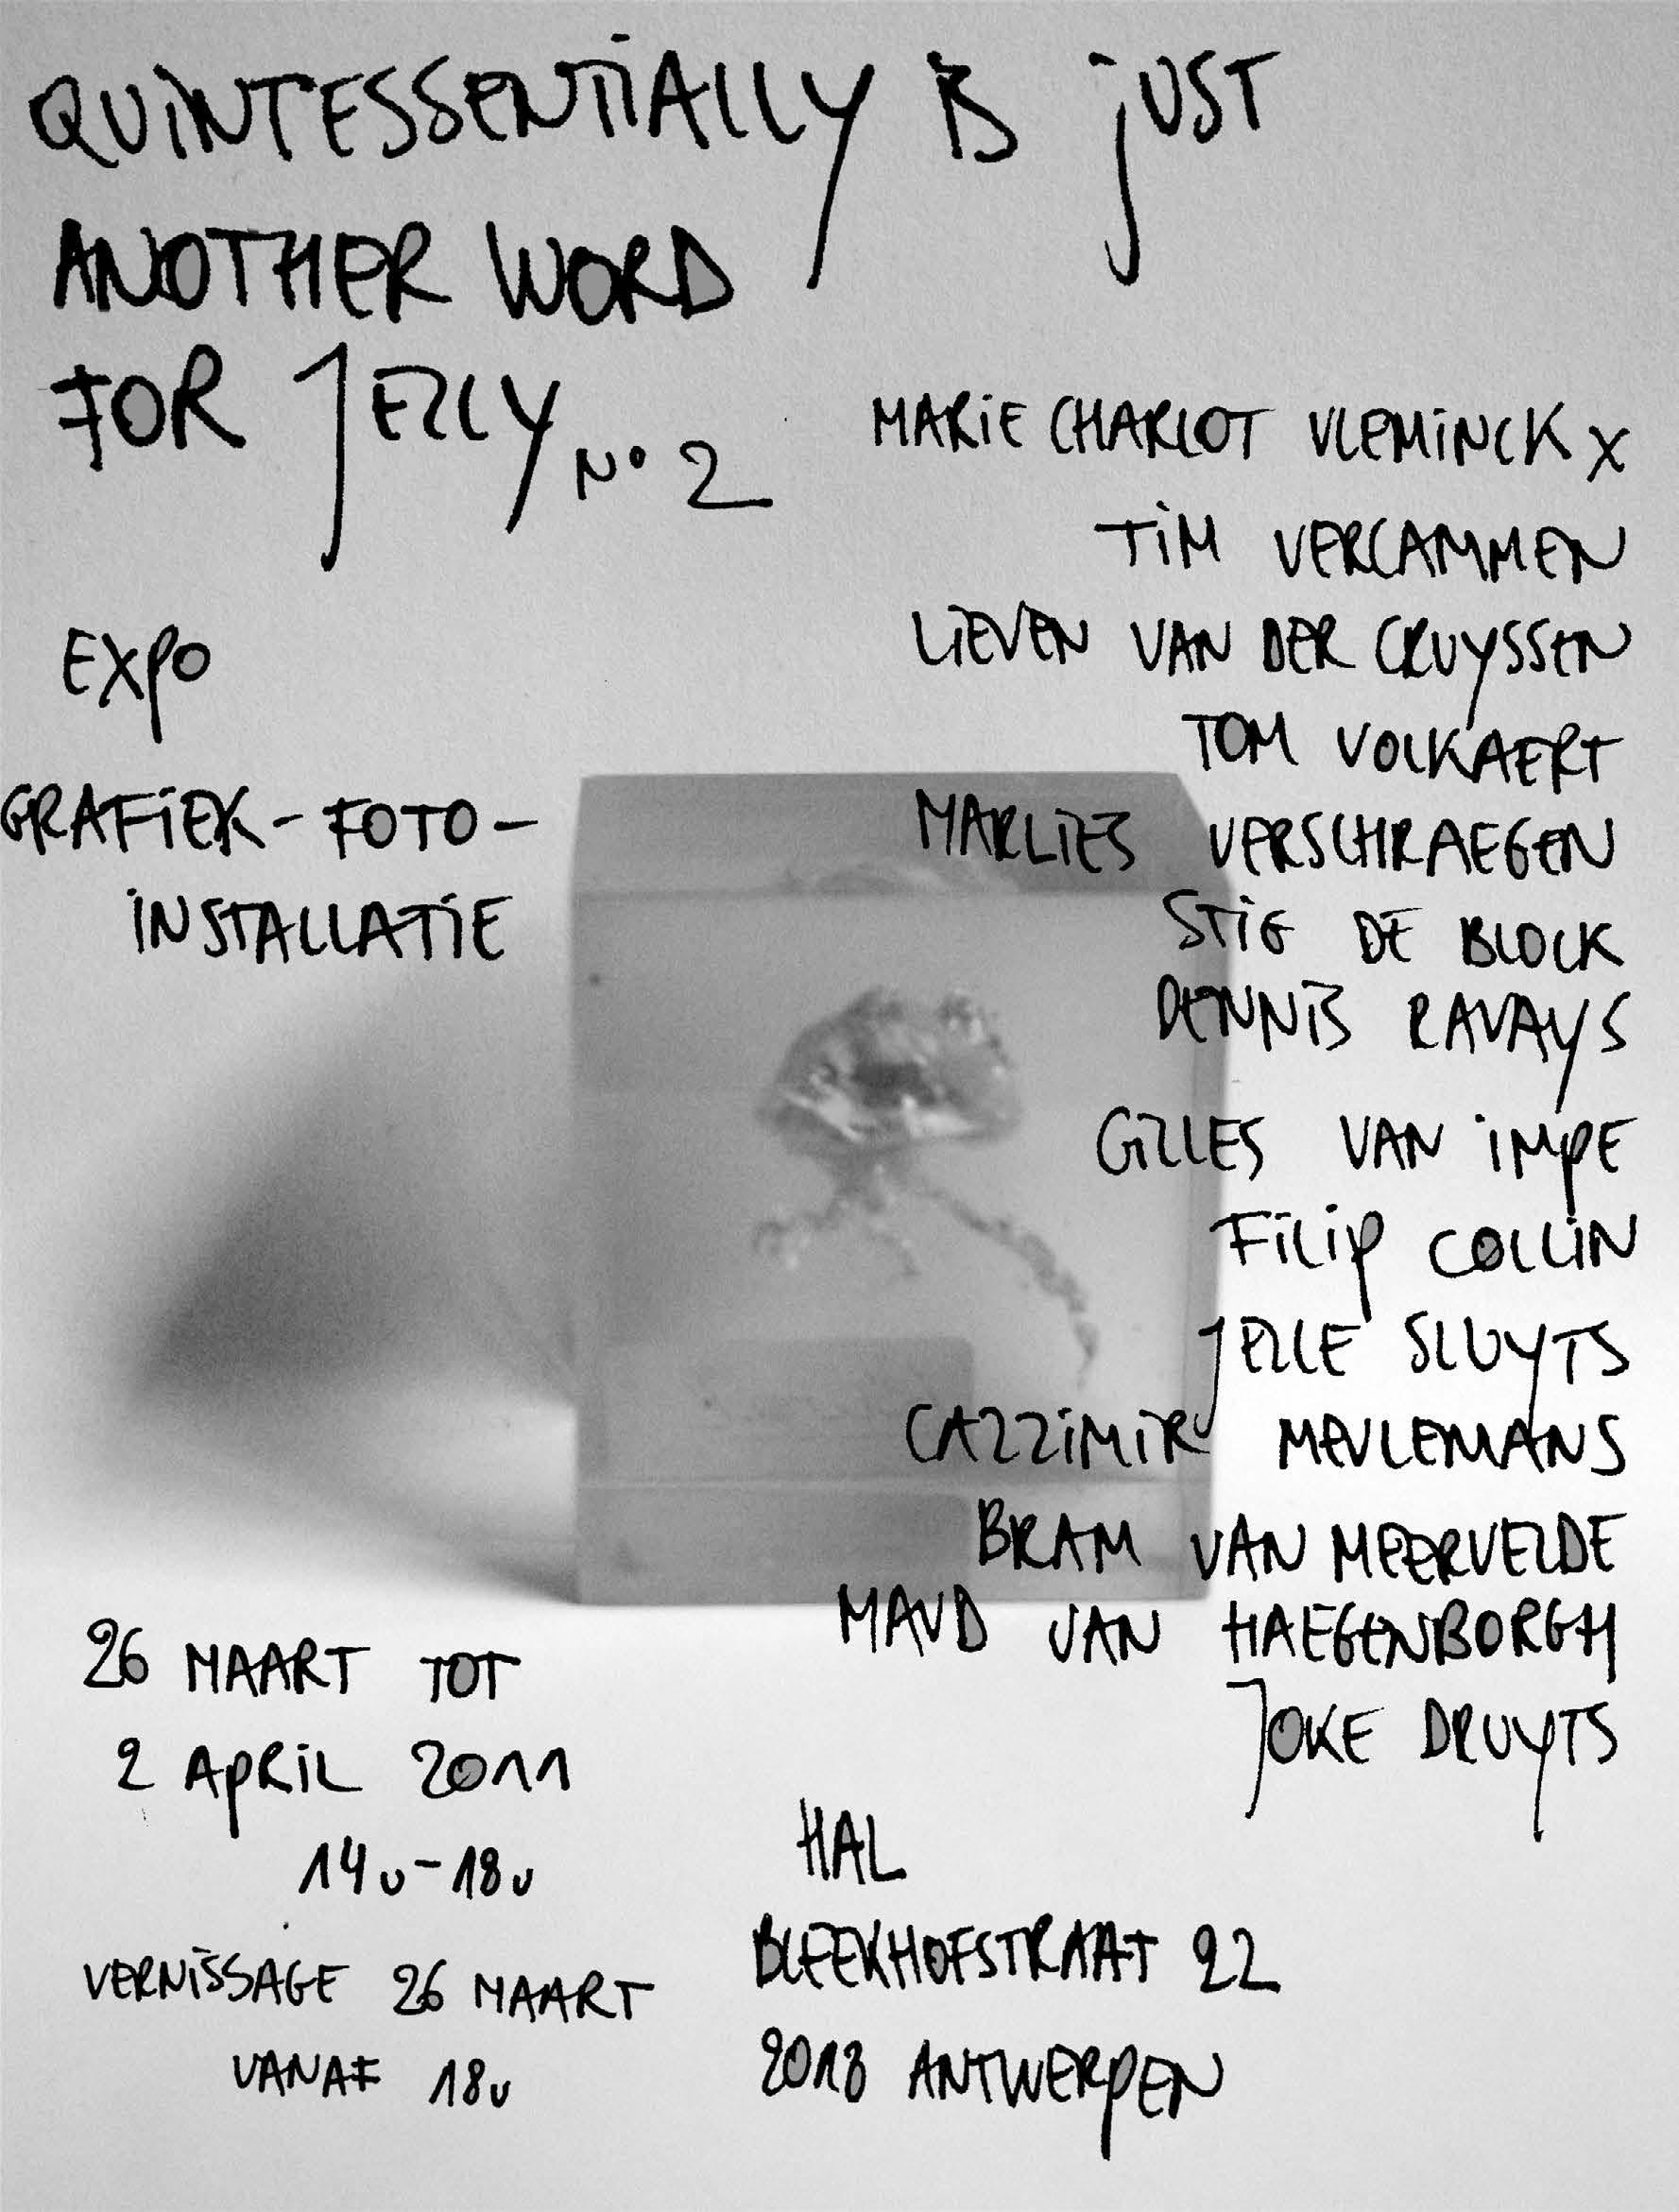 QUINTESSENTIALLY IS jUST
ANOTHER WORD
FOR JELLY N° 2
MARiE CHARLOT VLEMiNCKX
TiM VERCAMMEN
LIEVEN VAN DER CRUYSSEN
TOM VOLKAERT
MARLIES VERSCHRAEGEN
STiG DE BLOCK
DENNIS RAVAYS
GILLES VAN iMPE
FiLiP COLLiN
JELLE SLUYTS
CAZZiMIR MEULEMANS
BRAM VAN MEERVELDE
MAUD VAN HAEGENBORGH
JOKE DRUYTS
EXPO
GRAFiEK - FOTO -
iNSTALLATiE
26 MAART TOT
2 APRiL 2011
14u - 18u
VERNiSSAGE 26 MAART
VANAF 18u
HAL
BLEEKHOFSTRAAT 22
2018 ANTWERPEN